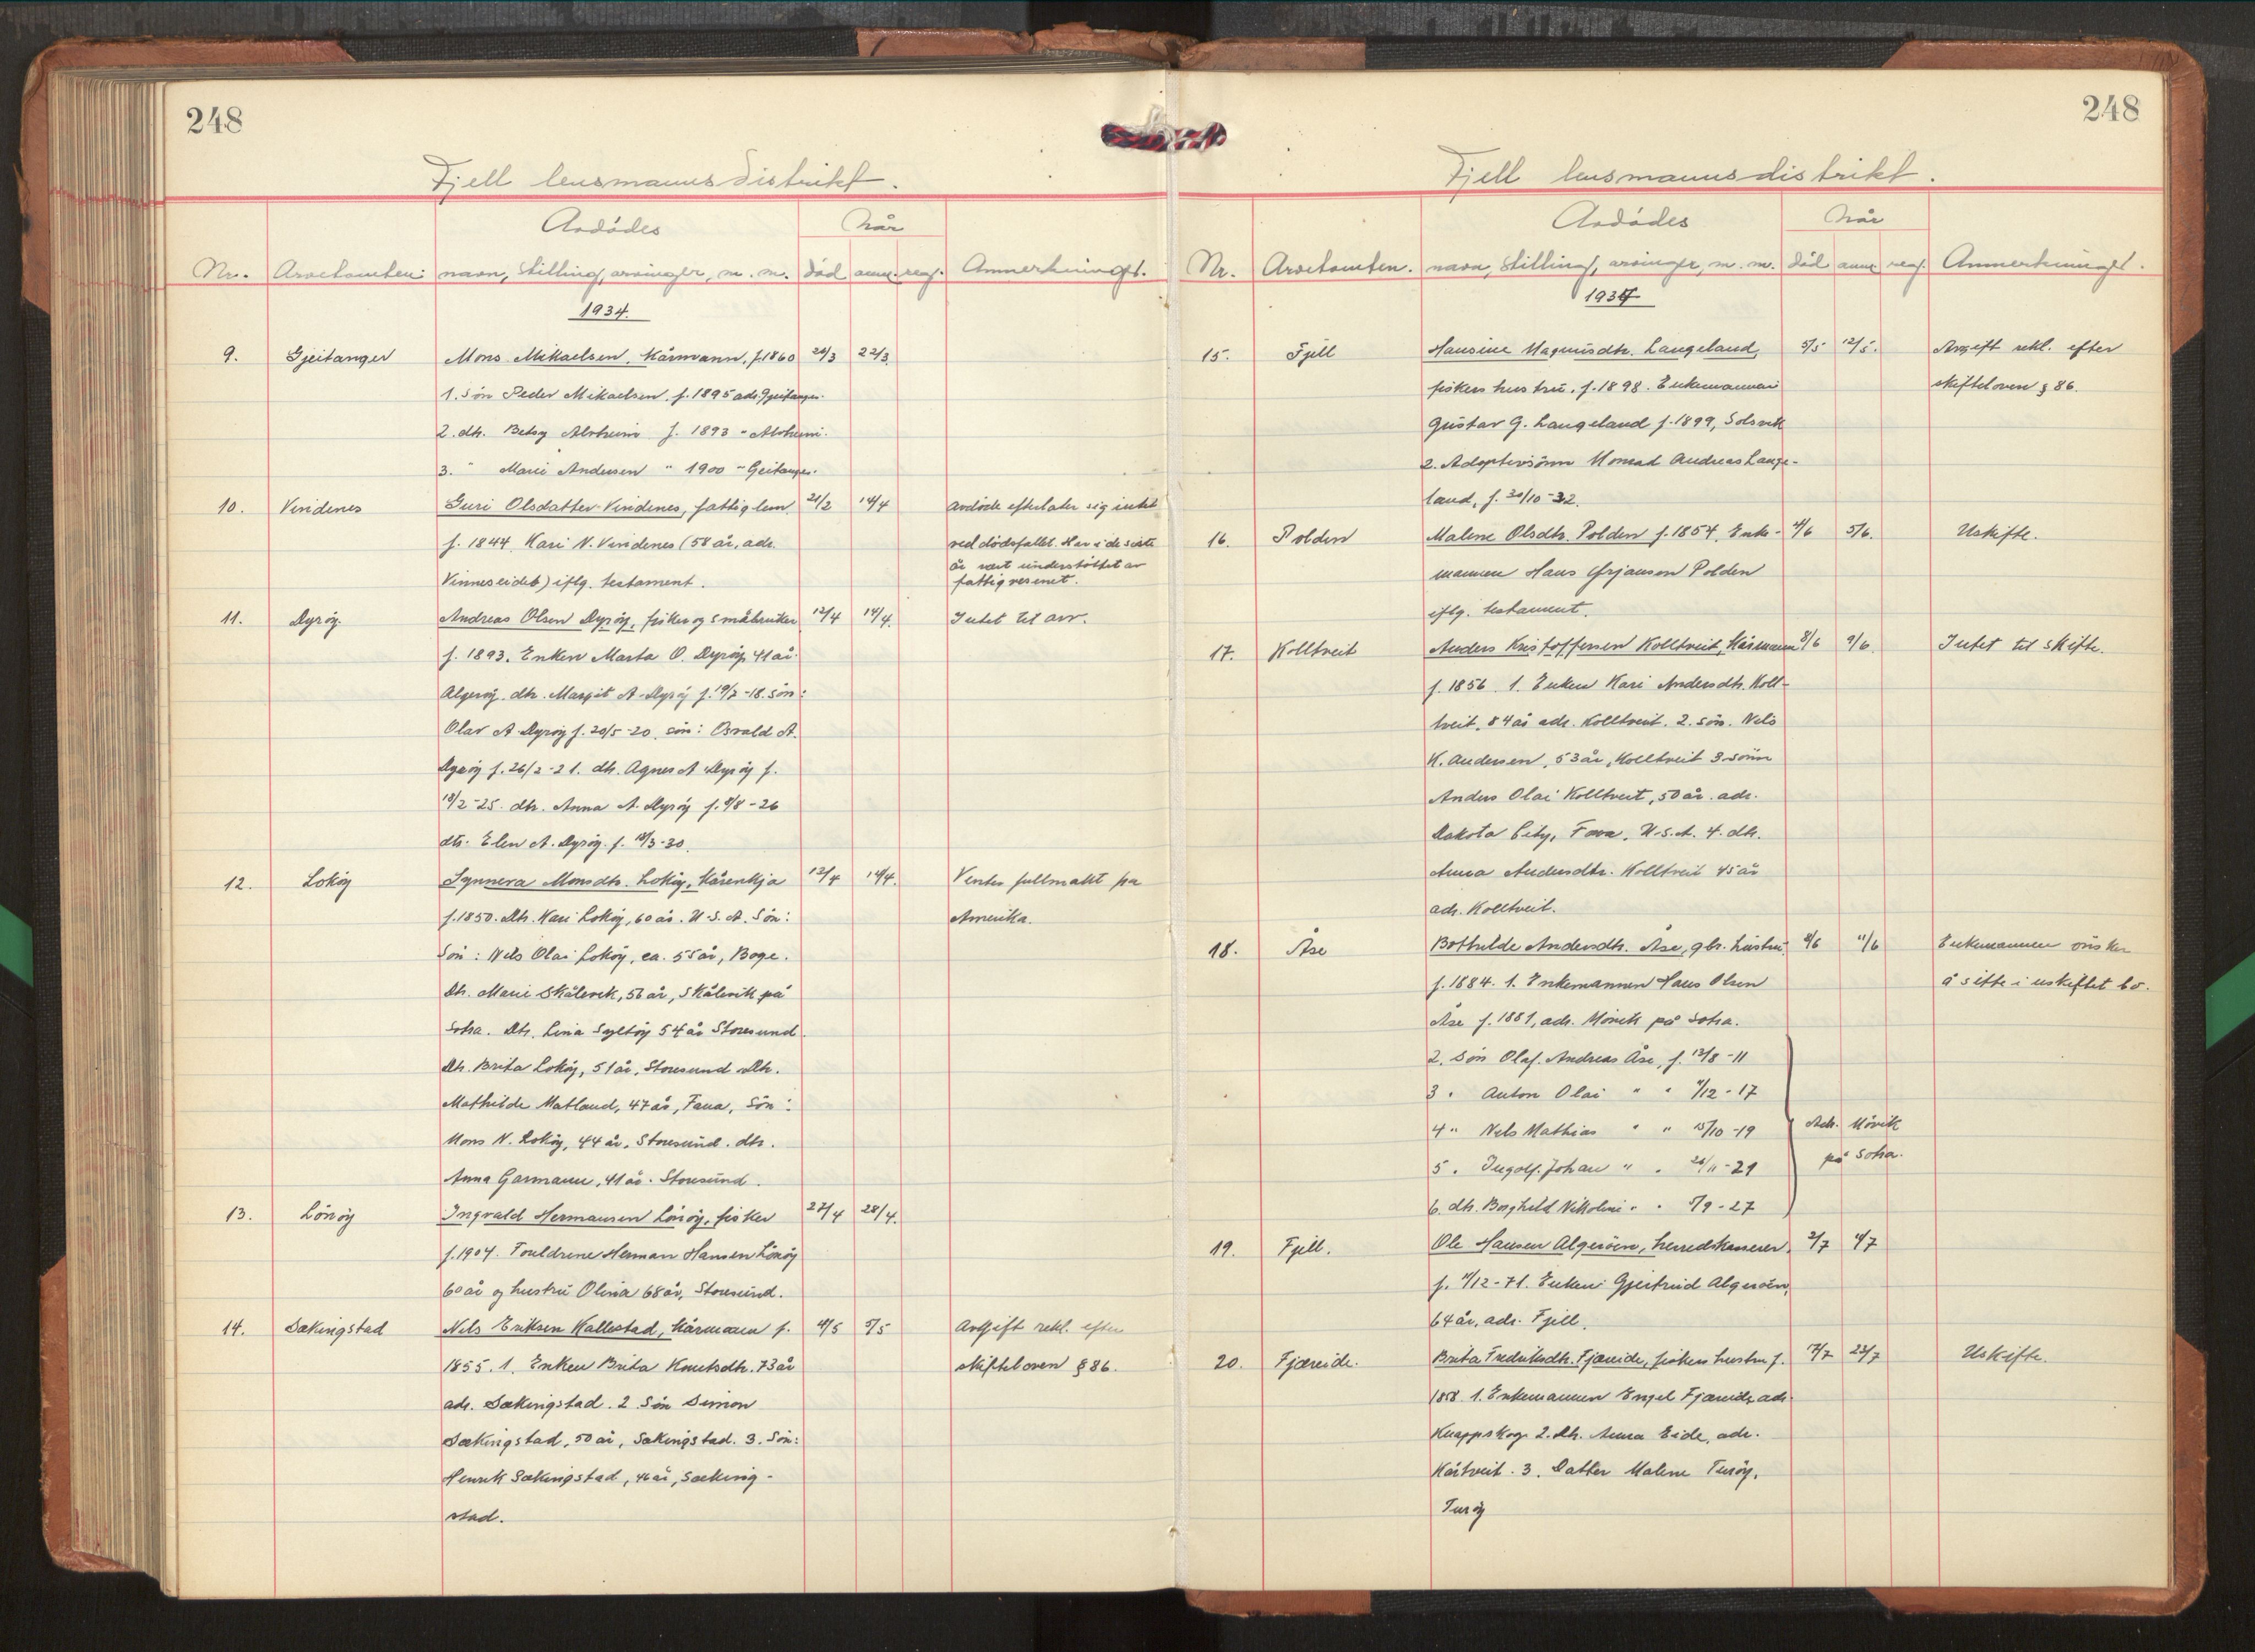 248
Fjell lensmannsdistrikt.
Avdødes
Når
Nr. Arvetomten: navn, stilling, arvinger, m. m. død anm. reg. Anmerkninger.
1934.
9. Gjeitanger Mons Mikaelsen, kårmann, f. 1860 20/3 22/3.
1. Søn Peder Mikaelsen, f. 1895 adr. Gjeitanger.
2. dtr. Betsy Alvheim f. 1893 " Alvheim.
3. " Marie Andersen " 1900 " Geitanger.
10. Vindenes Guri Olsdatter Vindenes, fattiglem. 21/2 14/4 Avdøde efterlater sig intet
f. 1844. Kari N. Vindenes (58 år, adr. ved dødsfallet. Har i de siste
Vinneseidet) iflg. testament. år vært understøttet av
fattigvesenet.
11. Dyrøy. Andreas Olsen Dyrøy, fisker og småbruker 12/4 14/4. Intet til arv.
f. 1893. Enken Marta O. Dyrøy, 41 år.
Algerøy. dtr. Margit A. Dyrøy f. 19/7-18. søn:
Olav A. Dyrøy f. 20/5-20. søn: Osvald A.
Dyrøy f. 26/2-21. dtr. Agnes A. Dyrøy f.
18/2-25. dtr. Anna A. Dyrøy f. 9/8-26
dtr. Elen A. Dyrøy. f. 18/3-30.
12. Lokøy Synnera Monsdtr. Lokøy, kårenkja 12/4 14/4. Ventes fullmakt fra
f. 1850. Dtr. Kari Lokøy, 60 år. U.S.A. Søn: Amerika.
Søn: Nils Olai Lokøy, ca. 55 år, Boge.
Dtr. Marie Skålevik, 56 år, Skålevik på
Sotra. Dtr. Lina Syltøy 54 år Storesund.
Dtr. Brita Lokøy, 51 år, Storesund. Dtr.
Mathilde Matland, 47 år, Fana, Søn:
Mons N. Lokøy, 44 år, Storesund. dtr.
Anna Garmann, 41 år. Storesund.
13. Lønøy Ingvald Hermansen Lønøy, fisker 27/4 28/4.
f. 1904. Foreldrene Herman Hansen Lønøy
60 år og hustru Olina 68 år, Storesund.
14. Sækingstad Nils Eriksen Kallestad, kårmann f. 4/5 5/5 Avgift rekl. efter
1855. 1. Enken Brita Knutsdtr. 73 år skifteloven § 86.
adr. Sækingstad. 2. Søn Simon
Sækingstad, 50 år, Sækingstad. 3. Søn:
Henrik Sækingstad, 46 år, Sæking-
stad.
248
Fjell lensmannsdistrikt.
Avdødes
Når
Nr. Arvetomten. navn, stilling, arvinger, m. m. død anm. reg. Anmerkninger.
1934
15. Fjell Hansine Magnusdtr. Langeland, 5/5 12/5. Avgift rekl. efter
fiskers hustru, f. 1898. Enkemannen skifteloven § 86.
Gustav G. Langeland f. 1899, Solsvik
2. Adoptivsønn Konrad Andreas Lange-
land, f. 30/10-32.
16. Polden Malene Olsdtr. Polden f. 1854. Enke- 4/6 5/6. Uskifte.
mannen Hans Ørjansen Polden
iflg. testament.
17. Kolltveit Anders Kristoffersen Kolltveit, kårmann 8/6 9/6. Intet til skifte.
f. 1856. 1. Enken Kari Andersdtr. Koll-
tveit, 84 år adr. Kolltveit. 2. søn. Nils
K. Andersen, 53 år, Kolltveit 3 sønn
Anders Olai Kolltveit, 50 år. adr.
Dakota City, Iova, U.S.A. 4. dtr.
Anna Andersdtr. Kolltveit 45 år
adr. Kolltveit.
18. Åse Bothilde Andersdtr. Åse, gbr. hustru 8/6 11/6 Enkemannen ønsker
f. 1884. 1. Enkemannen Hans Olsen å sitte i uskiftet bo.
Åse f. 1881, adr. Møvik på Sotra.
2. Søn Olaf Andreas Åse, f. 12/8-11
3 " Anton Olai " " 4/12-17
4 " Nils Mathias " " 15/10-19 Adr. Møvik
5 " Ingolf Johan " " 26/11-21 på Sotra.
6. dtr. Borghild Nikoline " " 5/9-27
19. Fjell. Ole Hansen Algerøen, herredskasserer. 2/7 4/7
f. 4/12-71. Enken Gjertrud Algerøen,
64 år, adr. Fjell.
20. Fjæreide. Brita Fredriksdtr. Fjæreide, fiskers hustru f. 17/7 23/7 Uskifte.
1858. 1. Enkemannen Engel Fjæreide, adr.
Knappskog. 2. dtr. Anna Eide, adr.
Kårtveit. 3. Datter Malene Turøy,
Turøy